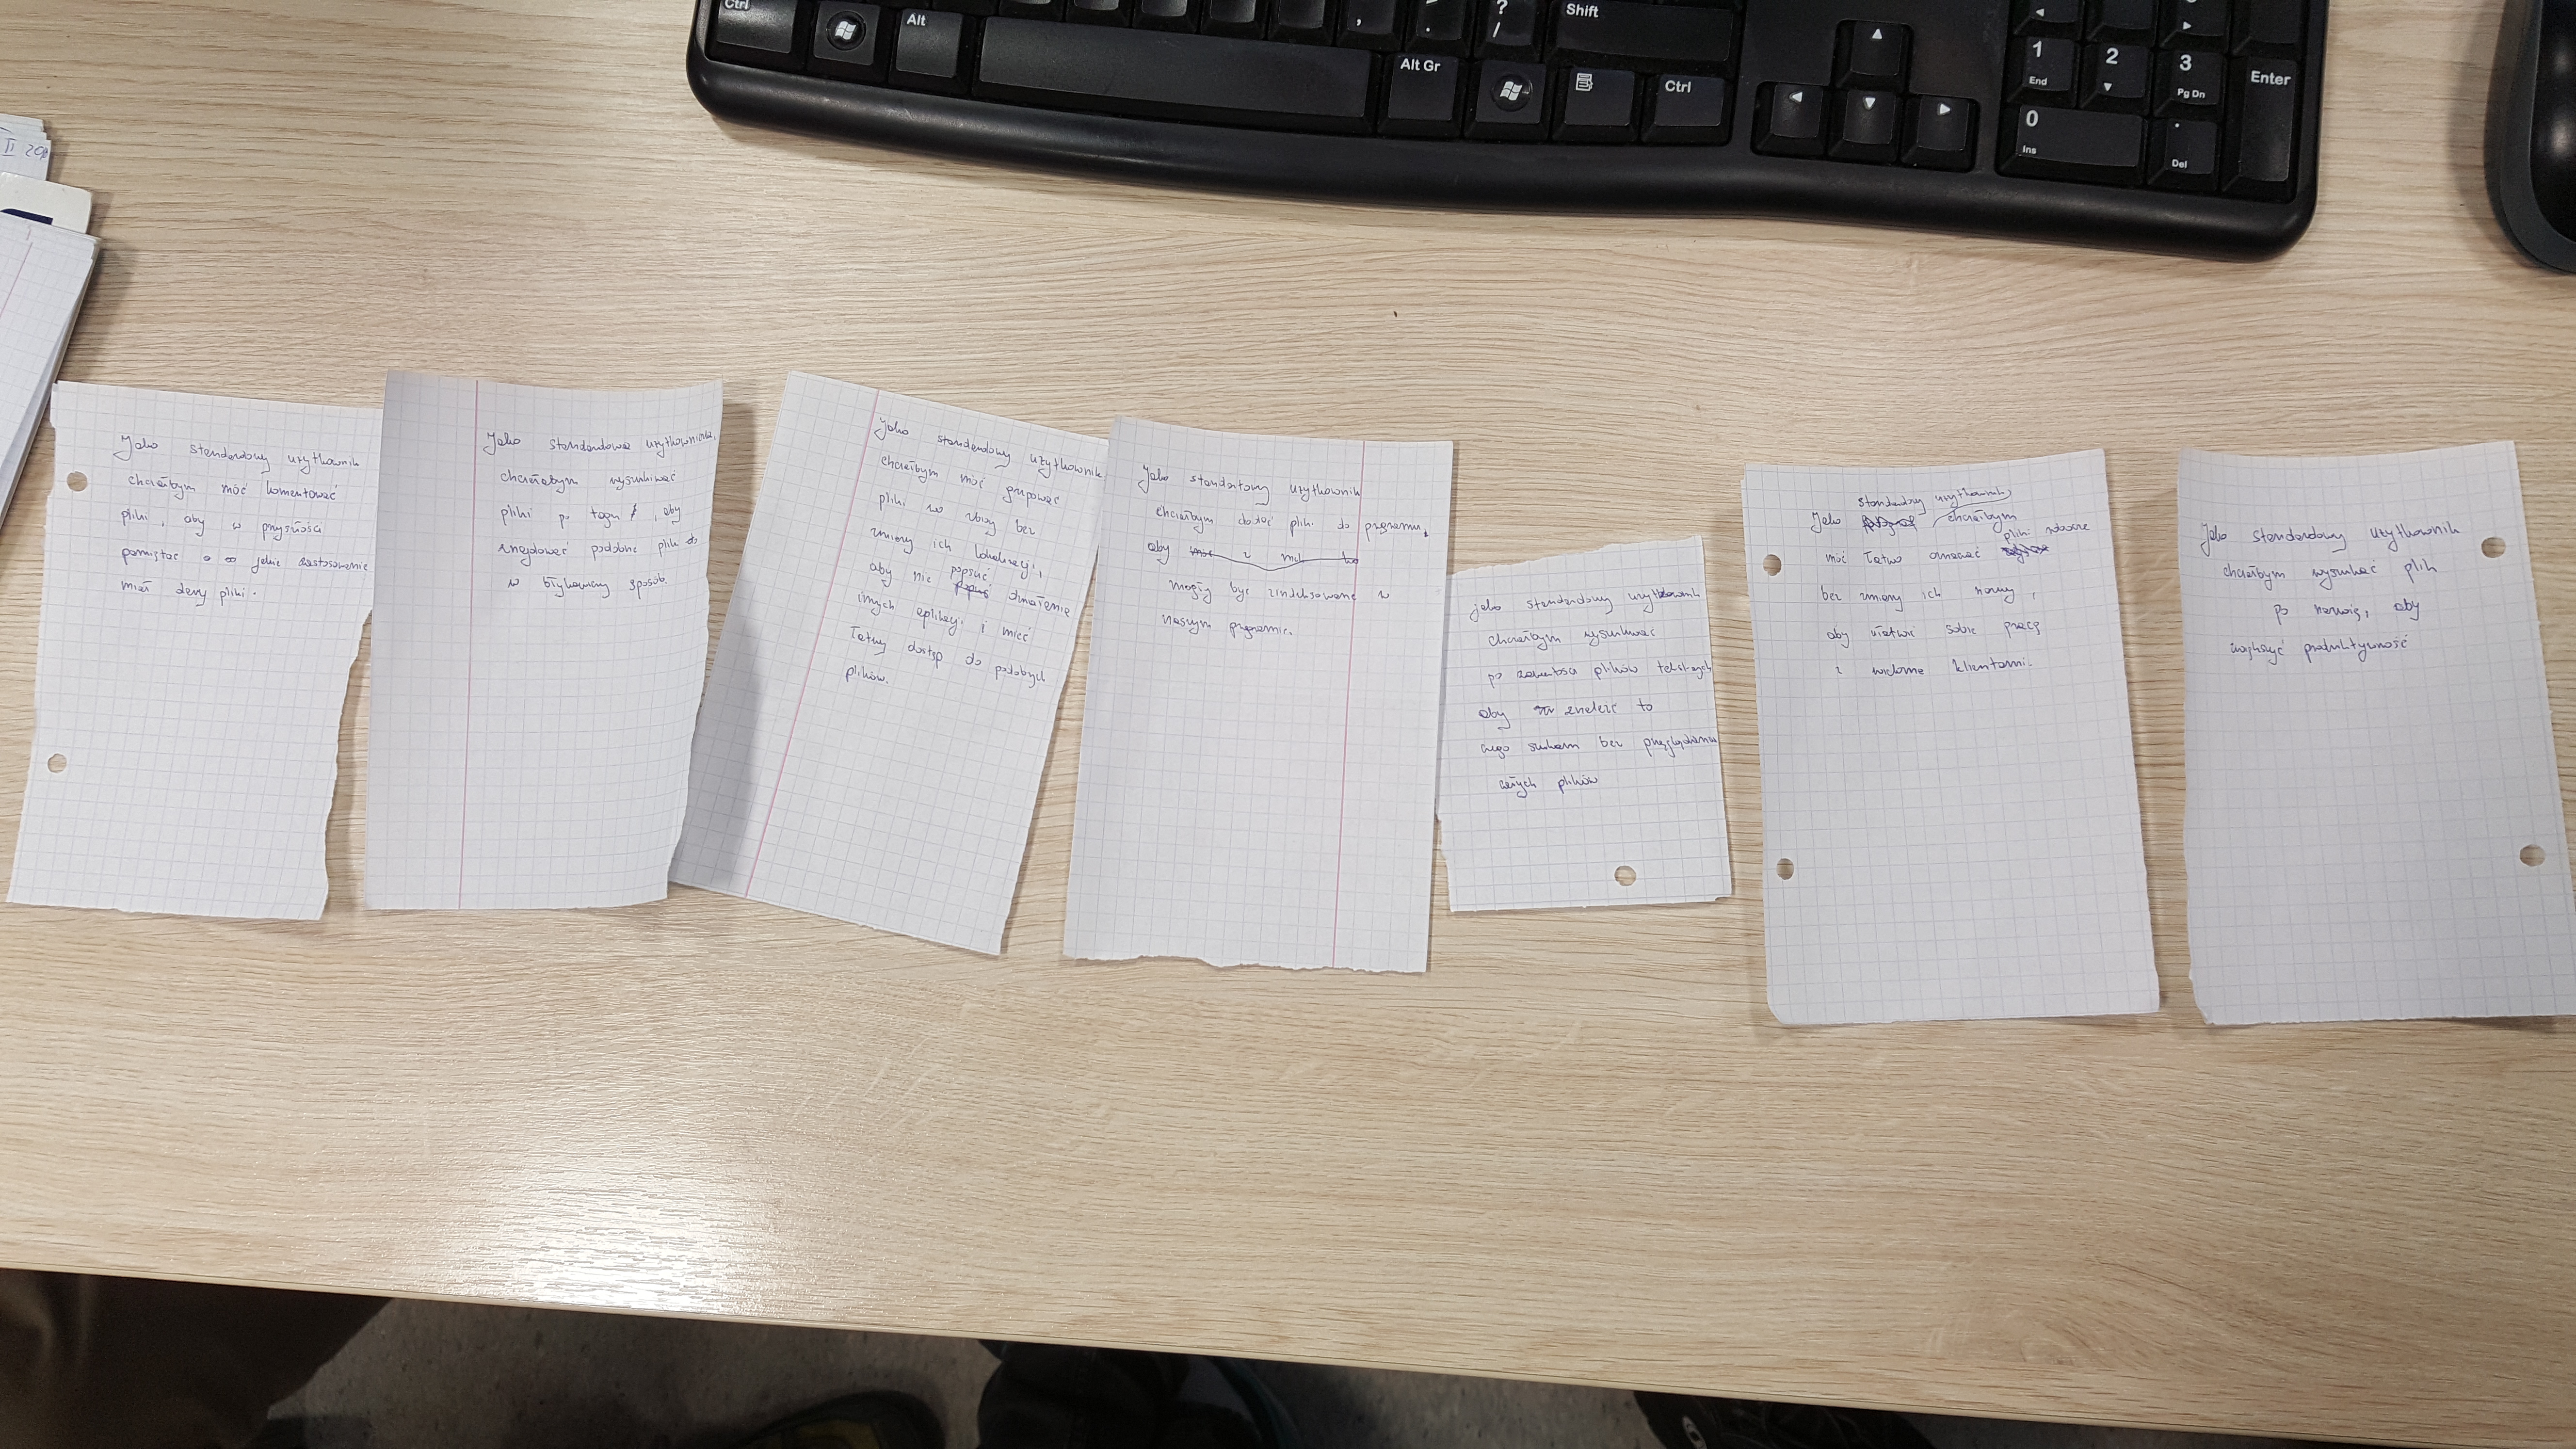 Ctrl
Alt
Alt Gr
Ctrl
Shift
,
.
?
/
1
End
2
3
Pg Dn
Enter
0
Ins
.
Del
II
Jako standardowy użytkownik
chciałbym móc komentować
pliki, aby w przyszłości
pamiętać o jakie zastosowanie
miał dany pliki.
Jako standardowa użytkowniczka,
chciałabym wyszukiwać
pliki po tagu, aby
znajdować podobne pliki
w błyskawiczny sposób.
Jako standardowy użytkownik
chciałbym móc grupować
pliki w zbiory bez
zmiany ich lokalizacji,
aby nie popsuć działanie
innych aplikacji i mieć
łatwy dostęp do podobnych
plików.
Jako standartowy użytkownik
chciałbym dodać pliki do programu,
aby
mogły być zindeksowane w
naszym programie.
jako standardowy użytkownik
chciałbym wyszukiwać
po zawartości plików tekstowych
aby znaleźć to
czego szukam bez przeglądania
całych plików
standardowy użytkownik
Jako chciałbym
pliki ważne
móc łatwo oznaczać
bez zmiany ich nazwy,
aby ułatwić sobie pracę
z wieloma klientami.
Jako standardowy użytkownik
chciałbym wyszukać plik
po nazwie, aby
zwiększyć produktywność